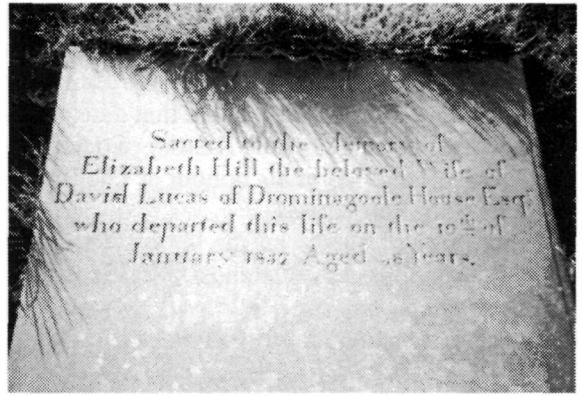 Sacred to the Memory of
Elizabeth Hill the beloved Wife of
David Lucas of Drominagoole House Esqr
who departed this life on the 10th of
January Aged Years.